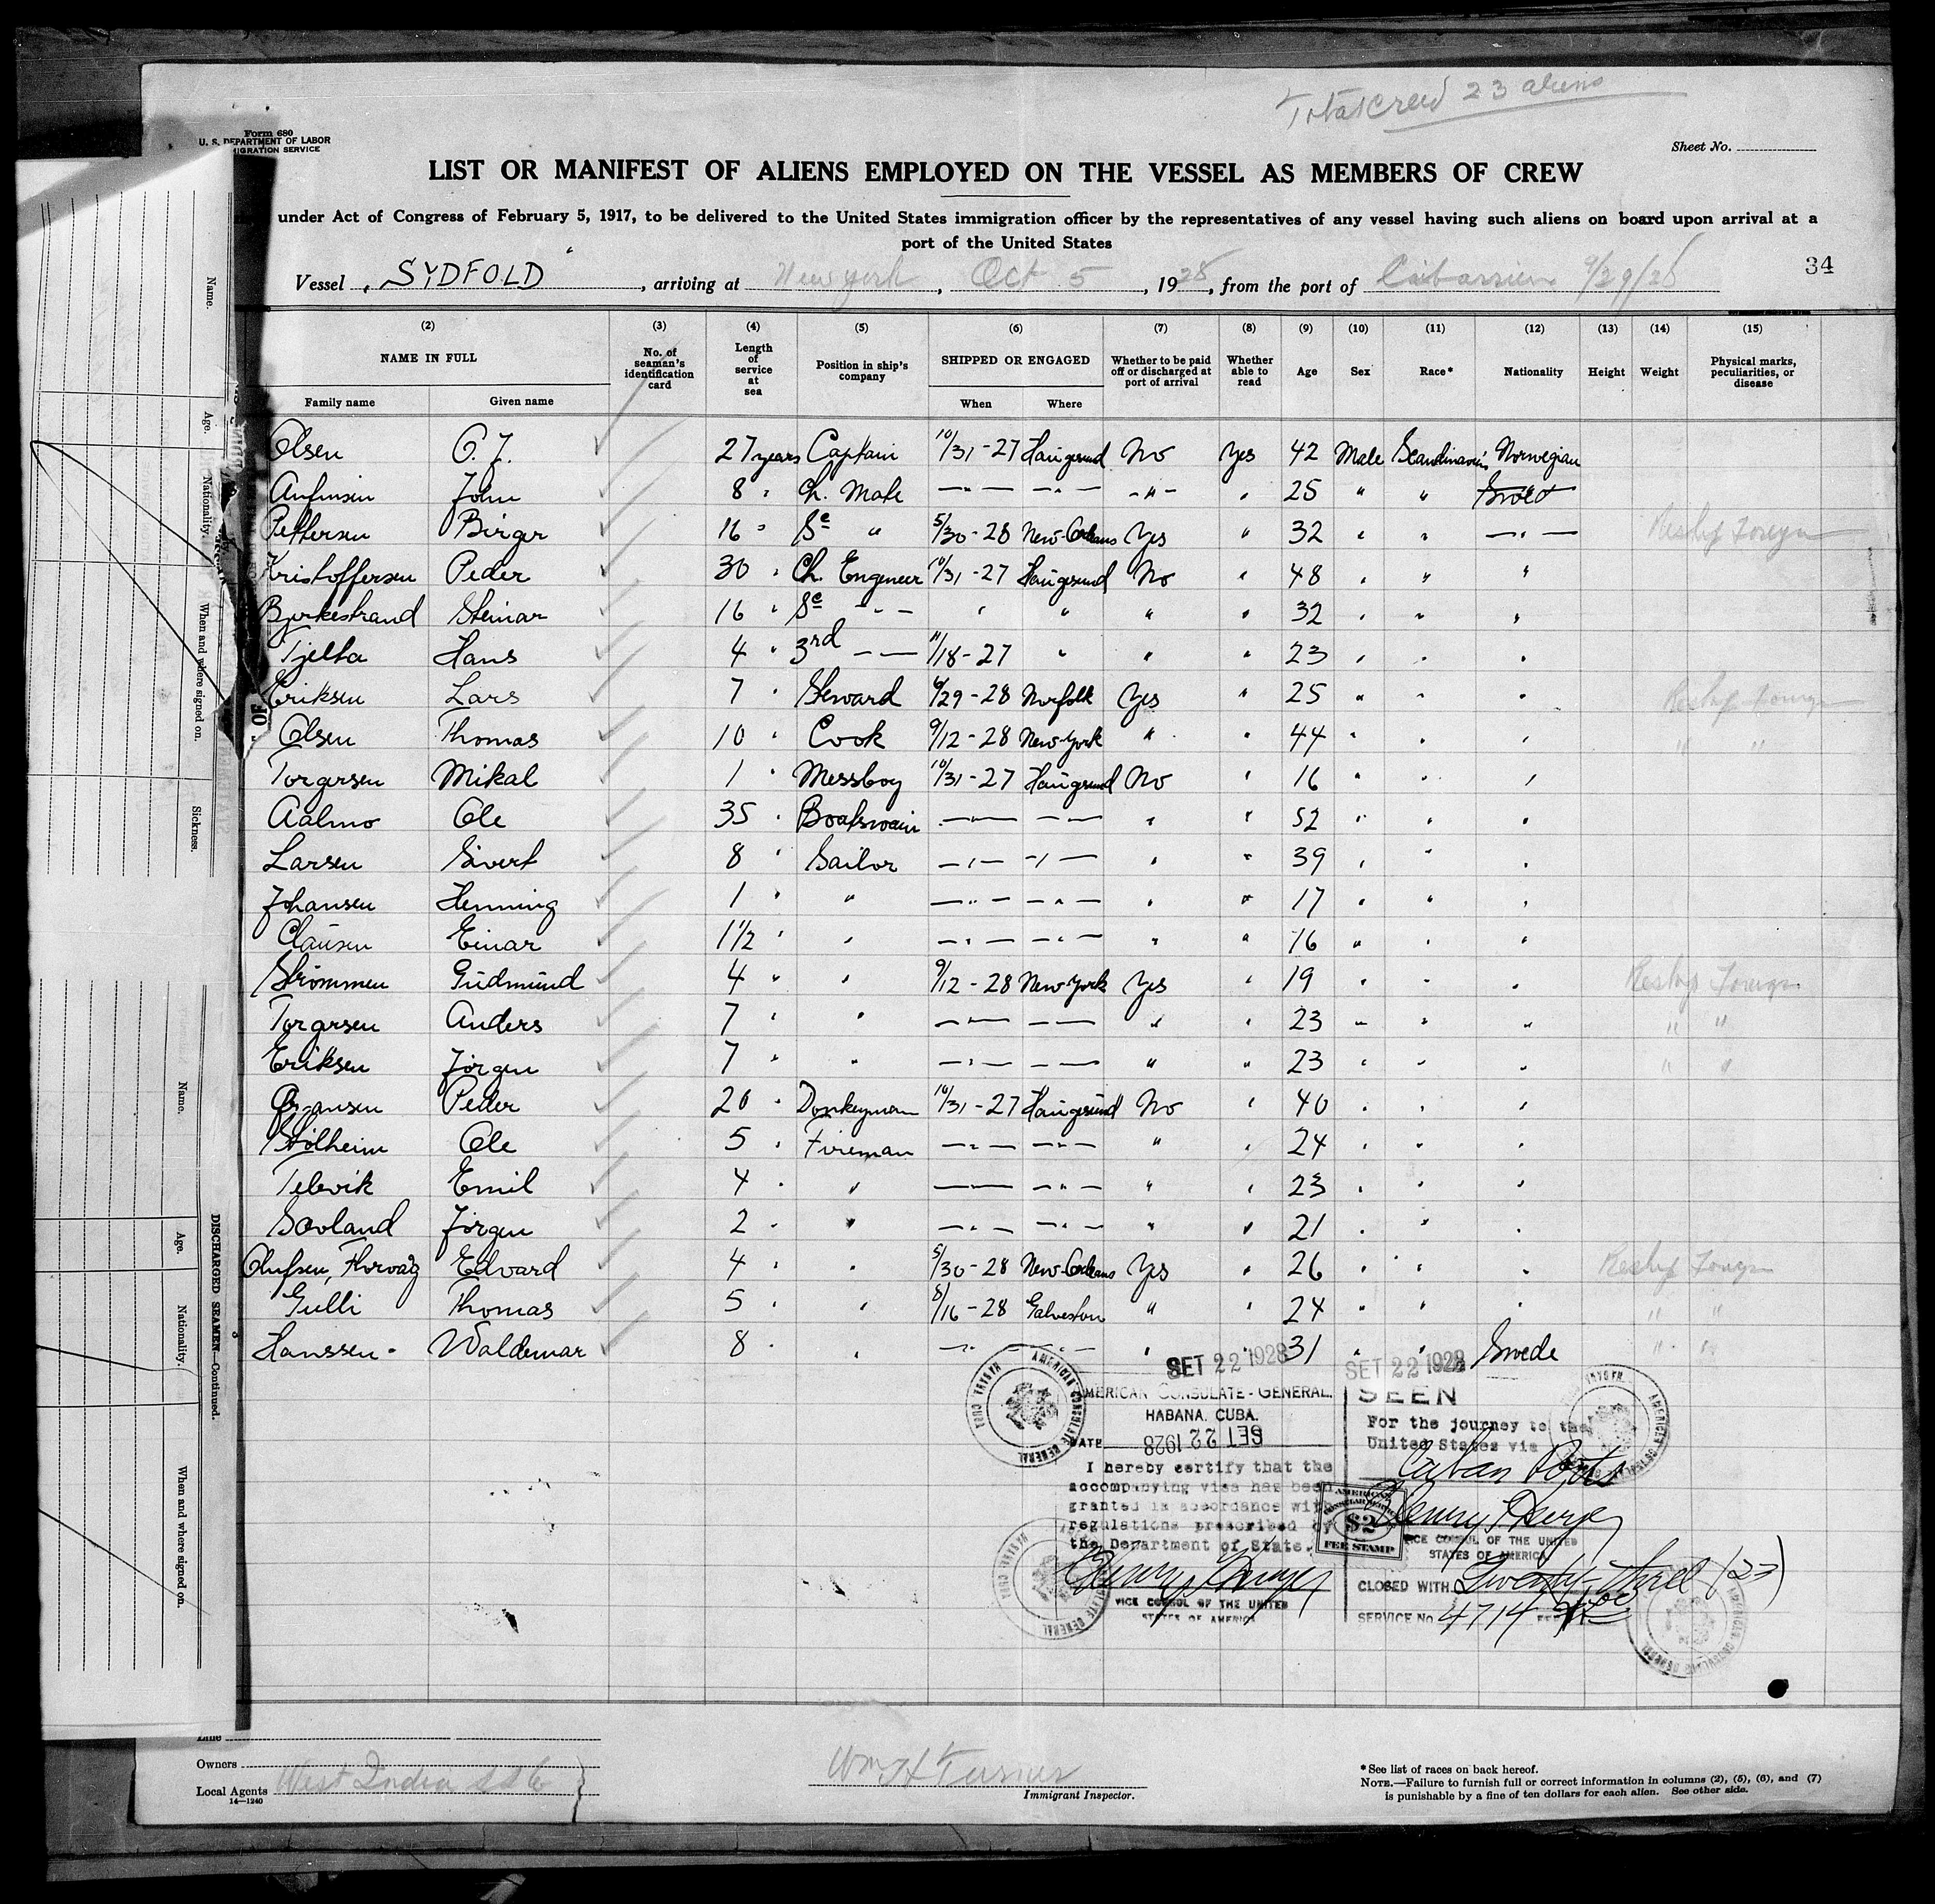 Total crew 23 aliens
Form 680
U. S. DEPARTMENT OF LABOR
IMMIGRATION SERVICE
Sheet No.
LIST OR MANIFEST OF ALIENS EMPLOYED ON THE VESSEL AS MEMBERS OF CREW
under Act of Congress of February 5, 1917, to be delivered to the United States immigration officer by the representatives of any vessel having such aliens on board upon arrival at a
port of the United States
34
Vessel SYDFOLD, arriving at New York, Oct 5, 1928, from the port of Caibarrien 9/29/28
(2) (3) (4) (5) (6) (7) (8) (9) (10) (11) (12) (13) (14) (15)
NAME IN FULL No. of seaman's identification card Length of service at sea Position in ship's company SHIPPED OR ENGAGED Whether to be paid off or discharged at port of arrival Whether able to read Age Sex Race* Nationality Height Weight Physical marks, peculiarities, or disease
Family name Given name When Where
Olsen O. J. 27 years Captain 10/31-27 Haugesund No Yes 42 Male Scandinavis Norwegian
Anfinsen John 8 " Ch. Mate —"— —"— -"- " 25 " "
Pettersen Birger 16 " Se " 5/30-28 New-Orleans Yes " 32 " " —"— Reship Foreign
Kristoffersen Peder 30 " Ch. Engeneer 10/31-27 Haugesund No " 48 " " "
Byrkestrand Steinar 16 " Se -"- " " " " 32 " " "
Tjelta Hans 4 " 3rd —— 11/18-27 " " " 23 " " "
Eriksen Lars 7 " Steward 6/29-28 Norfolk Yes " 25 " " " Reship Foreign
Olsen Thomas 10 " Cook 9/12-28 New-York " " 44 " " " " "
Torgersen Mikal 1 " Messboy 10/31-27 Haugesund No " 16 " " "
Aalmo Ole 35 " Boatswain —"— —"— " " 52 " " "
Larsen Sivert 8 " Sailor —"— —"— " " 39 " " "
Johansen Henning 1 " " —"— —"— " " 17 " " "
Clausen Einar 1 1/2 " " —"— —"— " " 16 " " "
Strømmen Gudmund 4 " " 9/12-28 New-York Yes " 19 " " " Reship Foreign
Torgersen Anders 7 " " —"— —— " " 23 " " " " "
Eriksen Jørgen 7 " " —"— —— " " 23 " " " " "
Peder 20 " Donkeyman 10/31-27 Haugesund No " 40 " " "
Stølheim Ole 5 " Fireman —"— —"— " " 24 " " "
Televik Emil 4 " " —"— —"— " " 23 " " "
Sovland Jørgen 2 " " —"— —"— " " 21 " " "
Olufsen, Horvåg Edvard 4 " " 5/30-28 New-Orleans Yes " 26 " " " Reship Foreign
Gulli Thomas 5 " " 8/16-28 Galveston " " 24 " " " " "
Hanssen - Waldemar 8 " " —"— —"— " " 31 " " Swede " "
SET 22 1928
SET 22 1928
AMERICAN CONSULATE-GENERAL.
HABANA, CUBA.
DATE SET 22 1928
I hereby certify that the
accompanying visa has been
granted in accordance with
regulations prescribed by
the Department of State.
VICE CONSUL OF THE UNITED
STATES OF AMERICA
SEEN
For the journey to the
United States via
Cuban Ports
VICE CONSUL OF THE UNITED
STATES OF AMERICA
CLOSED WITH Twenty-third (23)
SERVICE No. 4714 FEE
AMERICAN CONSULATE GENERAL HABANA, CUBA
AMERICAN
CONSULAR SERVICE
$2
FEE STAMP
Name.
Age.
Nationality.
When and where signed on.
Sickness.
Name.
Age.
Nationality.
When and where signed on.
DISCHARGED SEAMEN—Continued.
Line
Owners
Local Agents West India SS Co
14—1240
Wm H Turner
Immigrant Inspector.
*See list of races on back hereof.
NOTE.—Failure to furnish full or correct information in columns (2), (5), (6), and (7)
is punishable by a fine of ten dollars for each alien. See other side.